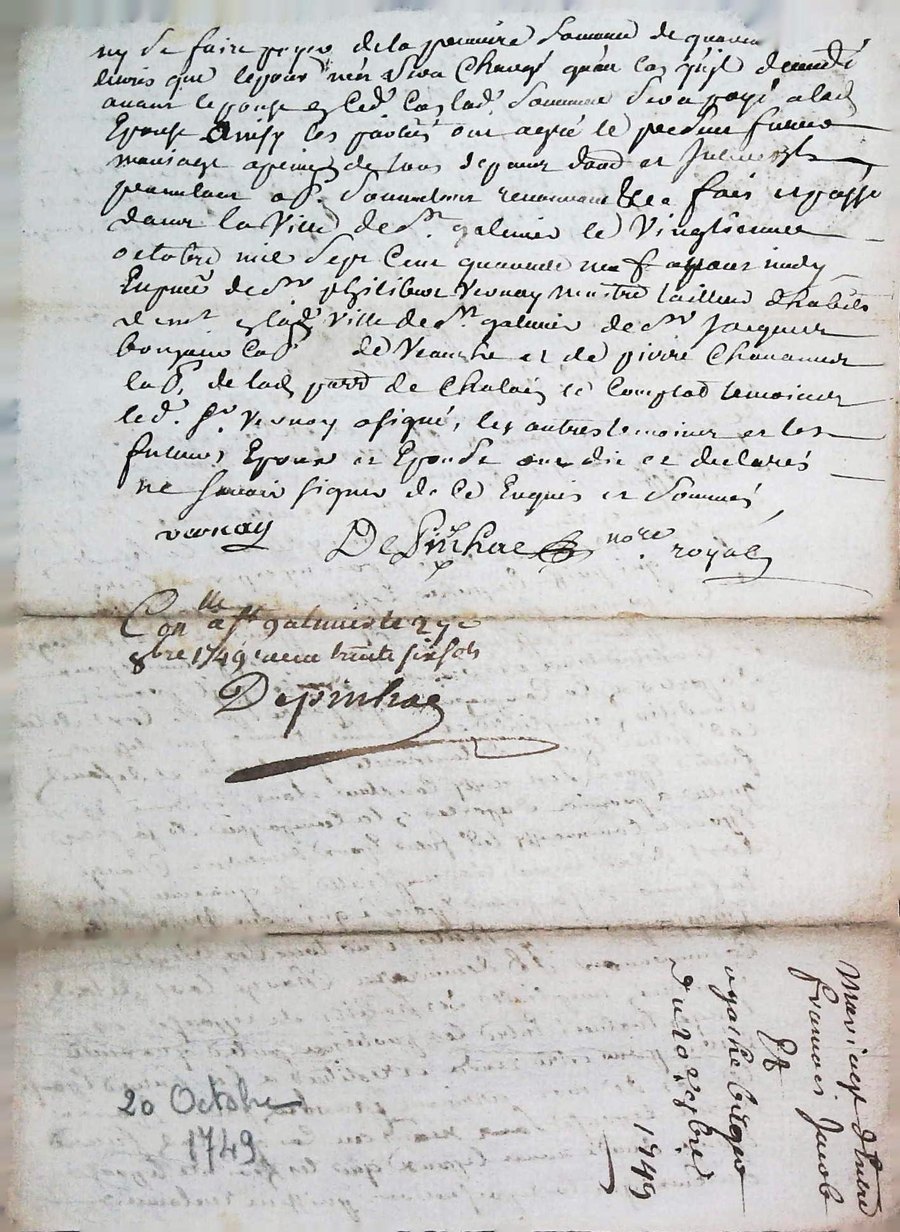 ny de faire payer de la premiere somme de quarante
livres que lepoux n'en sera chargé qu'en cas qu'il decede
avant lepouse esd. cas lad. somme sera payé a lad.
Epouse Ainsy les parties ont agréé le present futur
mariage a peine de tous depens dom. et
permetant renonceant &ca fait et passé
dans la Ville de St. galmier le Vingtiemme
octobre mil sept cent quarante neuf apres midy
En pnce de Sr philibert Vernay maitre tailleur d'habits
demt. esd. Ville de St. galmier de Sr Jacques
de Veauche et de pierre
de lad. parr. de temoins
led. Sr. Vernay a signé, les autres temoins et les
futurs Epoux et Epouse ont dit et declarés
ne savoir signer de ce Enquis et sommés
vernay Depinhac nore. royal
Conlle a st galmier le 29e
8bre 1749 receu trente six sols
Depinhac
20 Octobre
1749
Mariage d'entre
francois Jacob
Et
du 20 octobre
1749